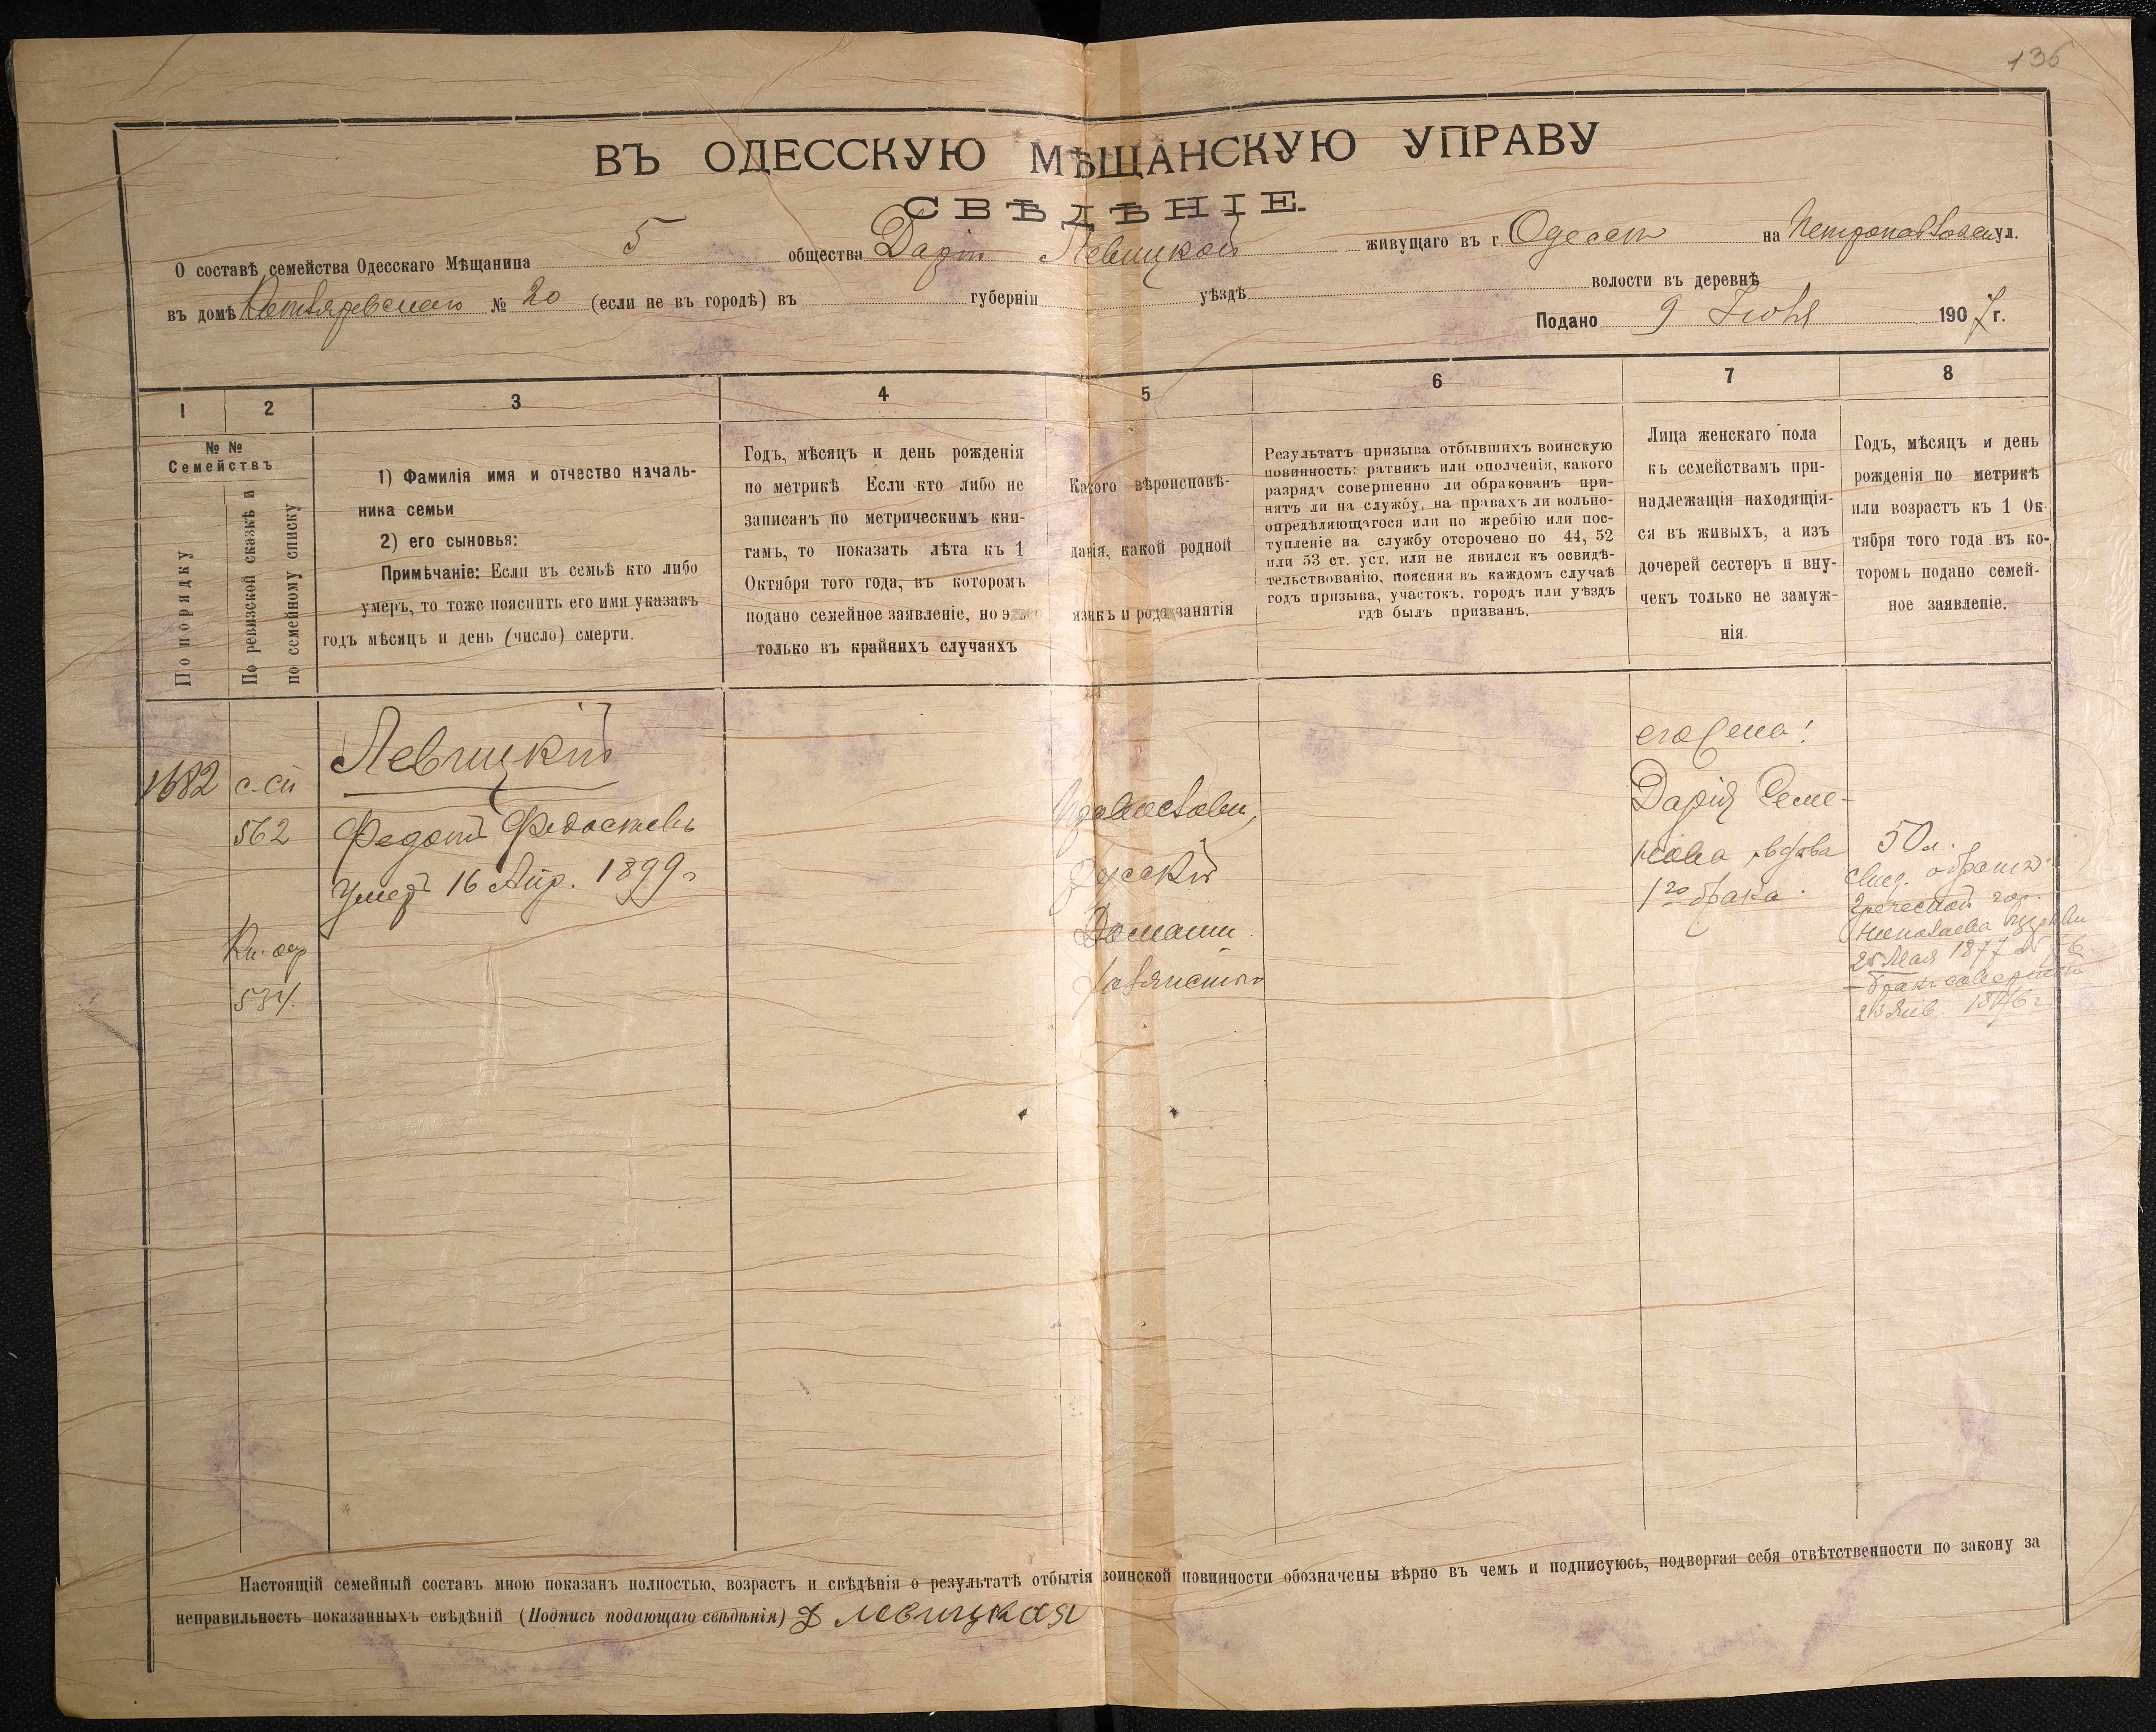 136
ВЪ ОДЕССКУЮ МѢЩАНСКУЮ УПРАВУ
СВѢДѢНІЕ.
О составѣ семейства Одесскаго Мѣщанина 5 общества Даріи Левицкой живущаго въ г Одессѣ на Петропавловск ул.
въ домѣ № 20 (если не въ городѣ) въ губерніи уѣздѣ волости въ деревнѣ
Подано 9 Іюля 1907 г.
1 2 3 4 5 6 7 8
№ №
Семействъ
По порядку
По ревизской сказкѣ и
по семейному списку
1) Фамилія имя и отчество началь-
ника семьи
2) его сыновья:
Примѣчаніе: Если въ семьѣ кто либо
умеръ, то тоже пояснить его имя указавъ
годъ мѣсяцъ и день (число) смерти.
Годъ, мѣсяцъ и день рожденія
по метрикѣ Если кто либо не
записанъ по метрическимъ кни-
гамъ, то показать лѣта къ 1
Октября того года, въ которомъ
подано семейное заявленіе, но это
только въ крайнихъ случаяхъ
Какого вѣроисповѣ-
данія, какой родной
языкъ и родъ занятія
Результатъ призыва отбывшихъ воинскую
повинность: ратникъ или ополченія, какого
разряда совершенно ли обракованъ при-
нятъ ли на службу, на правахъ ли вольно-
опредѣляющагося или по жребію или пос-
тупленіе на службу отсрочено по 44, 52
или 53 ст. уст. или не явился къ освидѣ-
тельствованію, поясняя въ каждомъ случаѣ
годъ призыва, участокъ, городъ или уѣздъ
гдѣ былъ призванъ.
Лица женскаго пола
къ семействамъ при-
надлежащія находящія-
ся въ живыхъ, а изъ
дочерей сестеръ и вну-
чекъ только не замуж-
нія.
Годъ, мѣсяцъ и день
рожденія по метрикѣ
или возрастъ къ 1 Ок-
тября того года въ ко-
торомъ подано семей-
ное заявленіе.
1682
с.сп
562
534
Левицкій
Федотъ
Умеръ 16 Апр. 1899 г
Православн,
русскій
Домашн.
его жена:
Дарія Семе-
нова вдова
1го брака.
50 л.
Свид. о бракѣ
Греческой гор.
Николаева церкви
25 Мая 1877
бракъ совершенъ
Янв. 1876 г.
Настоящій семейный составъ мною показанъ полностью, возрастъ и свѣдѣнія о результатѣ отбытія воинской повинности обозначены вѣрно въ чемъ и подписуюсь, подвергая себя отвѣтственности по закону за
неправильность показанныхъ свѣдѣній (Подпись подающаго свѣдѣнія) Д Левицкая